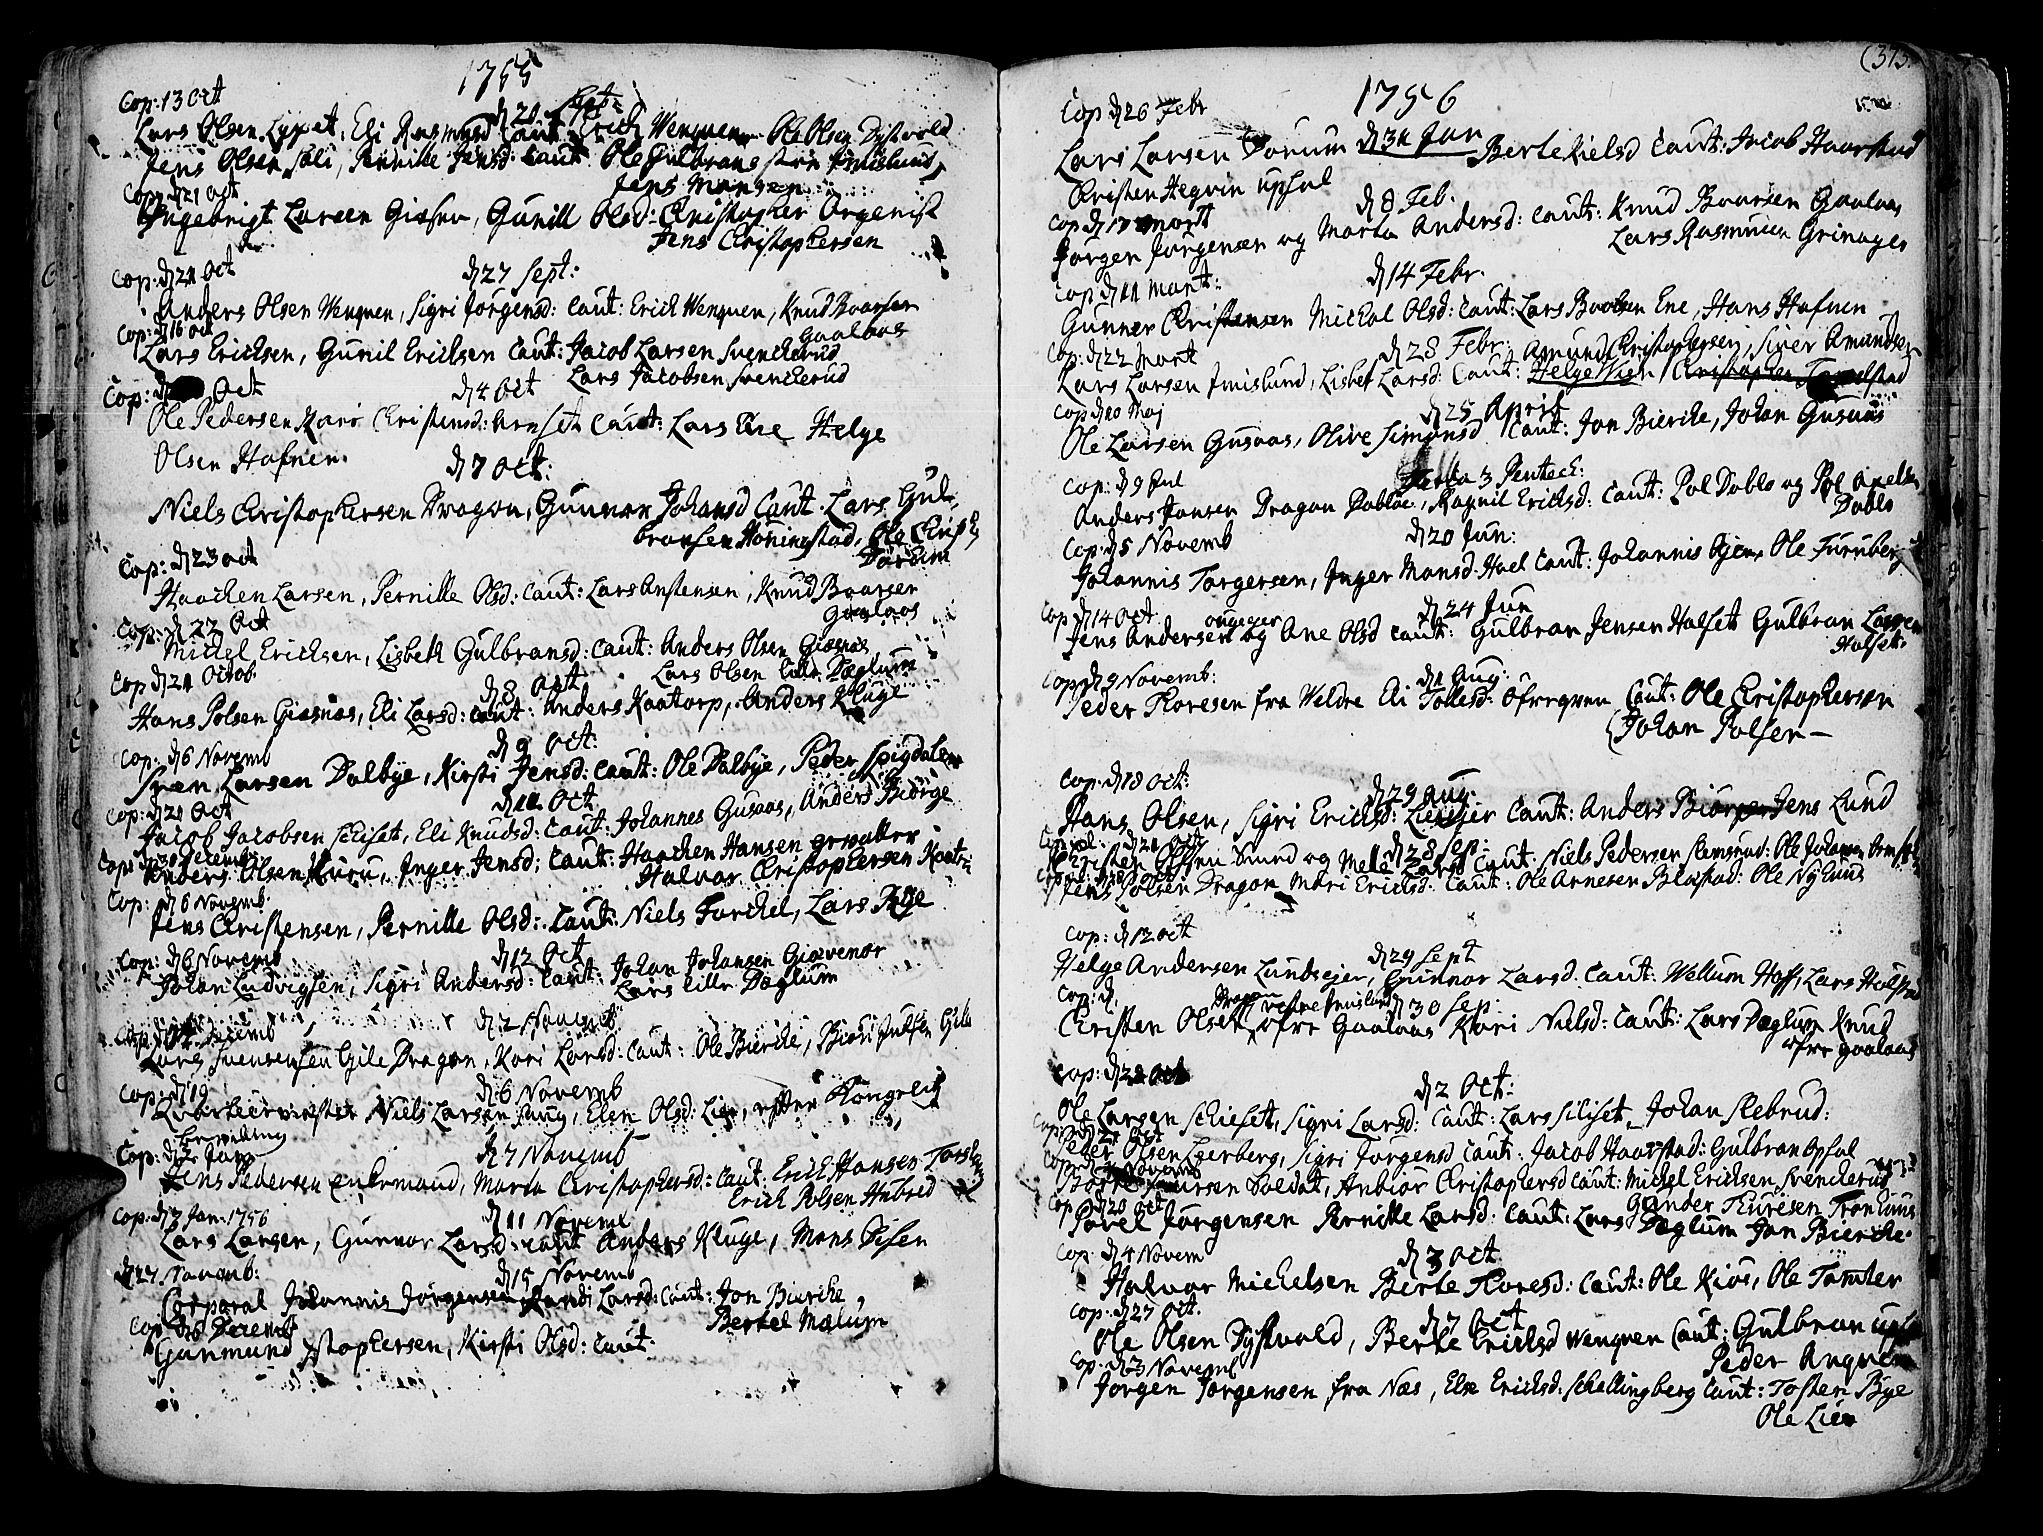 1755
Cop: 13 Oct
d 20 Sept:
Lars Olsen Lyset, Eli Rasmusd Caut: Erich Wenquen Ole Olsen Dystvold
Jens Olsen Sali, Pernille Jensd: Caut Ole Gulbransen Imislund,
Jens Monsen
Cop: d 21 Oct
Ingebrigt Larsen Giæser, Gunill Olsd: Christopher Orgenist
Jens Christophersen
Cop: d 21 Oct
d 27 Sept:
Anders Olsen Wenquen, Sigri Jörgensd: Caut: Erick Wenquen, Knud Baarsen
Gaalaas
Cop: d 16 oct
Lars Ericksen, Gunil Ericksen Caut: Jacob Larsen Svenckerud
Lars Jacobsen Svenckerud
Cop: d Oct
d 4 Oct
Ole Pedersen Kari Christensd: Arnset Caut: Lars Ene Helge
Olsen Hafnen.
d 7 Oct:
Niels Christophersen Dragon, Gunnor Johansd Caut. Lars Gul-
bransen Honingstad, Ole Christ
Dorum
Cop: d 23 oct
Haachen Larsen, Pernille Olsd: Caut: Lars Anstensen, Knud Baarsen
Gaalaas
Cop: d 22 Oct
Michel Ericksen, Lisbeth Gulbransd: Caut: Anders Olsen Giæsnas,
Lars Olsen lille Dæglum
Cop d 21 Octob.
d 8 Oct
Hans Polsen Giæsnas, Eli Larsd: Caut: Anders Kaatorp, Anders Kluge
Cop: d 6 Novemb
d 9 Oct:
Sven Larsen Dalbye, Kirsti Jensd: Caut: Ole Dalbye, Peder Spigdalen
Cop: d 21 Oct
d 11 Oct
Jacob Jacobsen Schiset, Eli Knudsd: Caut: Johannes Gusaas, Anders Biörge
Cop: d 30 Decemb
Anders Olsen Kuru, Inger Jensd: Caut: Haachen Hansen grvatter
Halvor Christophersen
Cop: d 6 Novemb.
Jens Christensen, Pernille Olsd: Caut: Niels Furchel, Lars Bye
Cop: d 6 Novemb
d 12 Oct
Johan Ludvigsen, Sigri Andersd: Caut: Johan Johansen Giævenor
Lars lille Dæglum
Cop: d Decemb
d 2 Novemb
Lars Svensensen Gile Dragon, Kari Larsd: Caut: Ole Biercke, Biörn Gile
Cop: d 19
d 6 Novemb
Quarteermester Niels Larsen Haug, Elen Olsd: Lien, efter Kongelig
bevilling
Cop: d 2 Jan
d 7 Novemb
Jens Pedersen enkemand, Marta Christophersd: Caut: Erick Hansen
Erich Polsen Hubred
Cop: d 7 Jan: 1756
d 11 Novemb
Lars Larsen, Gunnor Larsd: Caut Anders Kluge, Mons Disen
d 27 Novemb:
d 15 Novemb
Corporal Johannis Jörgensen Randi Larsd: Caut: Jon Biercke,
Bertel Mælum
Cop d 28 Decemb
Gunmund Xstophersen, Kirsti Olsd: Caut:
(375.
1756
Cop d 26 Febr
d 31 Jan
Lars Larsen Dorum Berte Nielsd Caut: Jacob Haarstad
Christen Hegvin upsal
d 8 Feb.
Cop d 17 Martt
Jörgen Jörgensen og Marta Andersd: Caut: Knud Baarsen Gaalaas
Lars Rasmusen Grinager
d 14 Febr.
Cop d 11 Mart:
Gunner Christensen Michal Olsd: Caut: Lars Ene, Hans Hafnen
Cop: d 22 Mart
d 28 Febr: Amund Christophersen, Siver Amundsen
Lars Larsen Imislund, Lisbet Larsd: Caut: Helge Nien Christopher
Cop d 10 Maj
d 25 April
Ole Larsen Gusaas, Olive Simonsd Caut: Jon Biercke, Johan Gusaas
Cop: d 9 Jul
Feria 3 Pentec:
Anders Hansen Dragon Dobloe, Ragnil Ericksd: Caut: Pol Doblo og Pol Axelsen
Doblo
Cop: d 5 Novemb
d 20 Jun:
Johannis Torgersen, Inger Monsd Hoel Caut: Johannis Bjerre Ole Furuberg
Cop d 14 Oct
d 24 Jun
Jens Andersen og Ane Olsd Caut: Gulbran Jensen Halset Gulbran Larsen
Halset.
Cop: d 9 Novemb:
d 1 Aug:
Peder Thoresen fra Veldre Eli Tollesd: Ofrequen Caut: Ole Christophersen
Johan Polsen
Cop: d 18 Oct:
d 29 Aug:
Hans Olsen, Sigri Ericksd: Caut: Anders Jens Lund
d 21 Oct
d 28 Sep:
Christen Olsen Smed og Mette Larsd Caut. Niels Pedersen Slemsrud: Ole Johansen
Jens Polsen Dragon Mari Ericksd: Caut: Ole Arnesen Blæstad: Ole Nylund
Cop: d 12 oct
d 29 Sept
Helge Andersen Lundsejer, Gunnor Larsd. Caut: Vellum Hoff, Lars Holstad
Cop: d.
Dragon vestre Imislund
d 30 Sep:
Christen Olsen, ofre Gaalaas Kari Nielsd: Caut: Lars Dæglum Knud
ofre gaalaas
Cop: d 21 Oct
d 2 Oct:
Ole Larsen Schieset, Sigri Larsd: Caut: Lars Siliset, Johan Slebrud:
Cop: d 21 Oct
Peder Olsen Egerberg, Sigri Jörgensd Caut: Jacob Haarstad: Gulbran Opsal
Cop: d Novemb
Soldat, Anbiör Christophersd Caut: Michel Ericksen, Svenckerud
Gunder Thuresen
Cop d 20 Oct
Povel Jörgensen Pernille Larsd: Caut: Lars Dæglum Jon Biercke.
Cop: d 4 Novem
d 3 Oct
Halvor Michelsen Berte Thoresd: Caut: Ole Kios, Ole Tomter
Cop: d 27 Oct.
d 7 Oct
Ole Olsen Dystvold, Berte Ericksd Wenquen Caut: Gulbran
Peder Anquen
Cop: d 3 Novemb
Jörgen Jörgensen fra Næs, Else Ericksd: Schellingberg Caut: Tosten Bye
Ole Lien